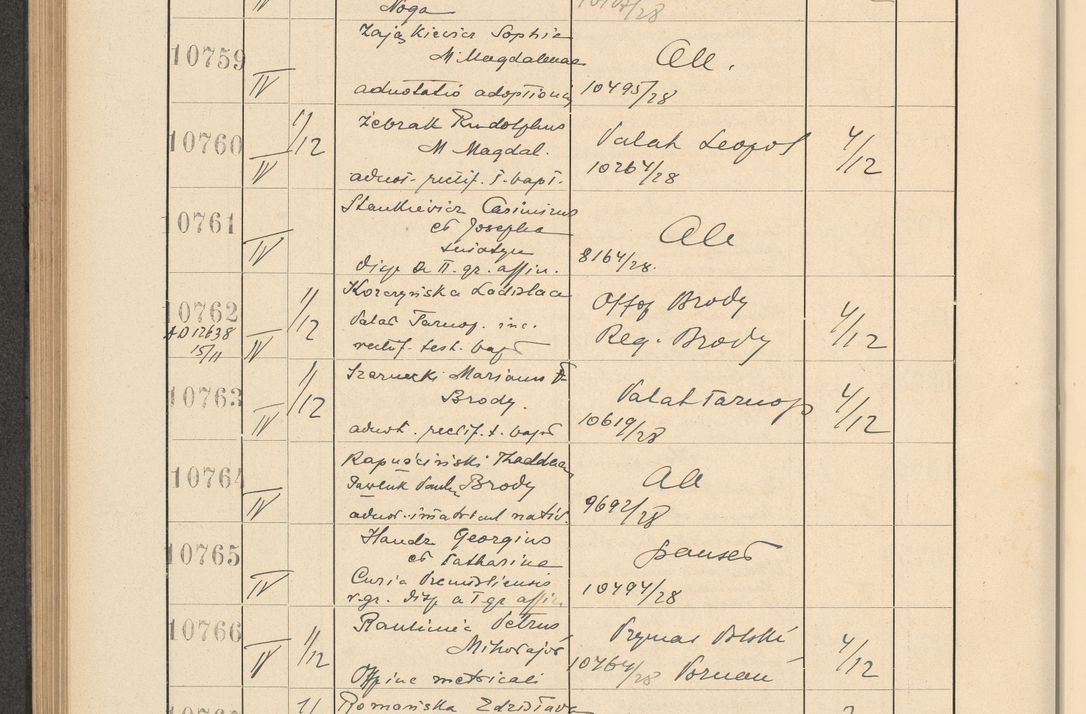 IV Noga
10759 IV Zająckiewicz Sophia
M. Magdalenae
adnotatio adoptionis
All.
10495/28
10760 IV 1/12 Żebrak Rudolphus
M Magdal.
adnot. rectif. t. bapt.
Valah Leopol
10264/28
4/12
10761 IV Stankiewicz Casimirus
et Josepha
Disp. a II. gr. affin.
All
8164/28.
10762
AD 12638
15/11
IV 1/12 Korczyńska Ladislaa
Valas Tarnop. inc.
rectif. test. bapt
Offof Brody
Reg. Brody
4/12
10763 IV 1/12 Szarnecki Marianus
Brody
adnot. rectif. t. bapt
Valah Tarnop
10619/28
4/12
10764 IV Kapuściński Thaddeus
Pawluk Brody
All
9692/28
10765 IV Handz Georgius
et Catharina
Curia Premisliensis
v. gr. disp a I gr affin.
10494/28
10766 IV 1/12 Petrus
Mikołajów
Offine metricali
Prymas Polski
Poznań
10464/28
4/12
Romańska Zdzisława